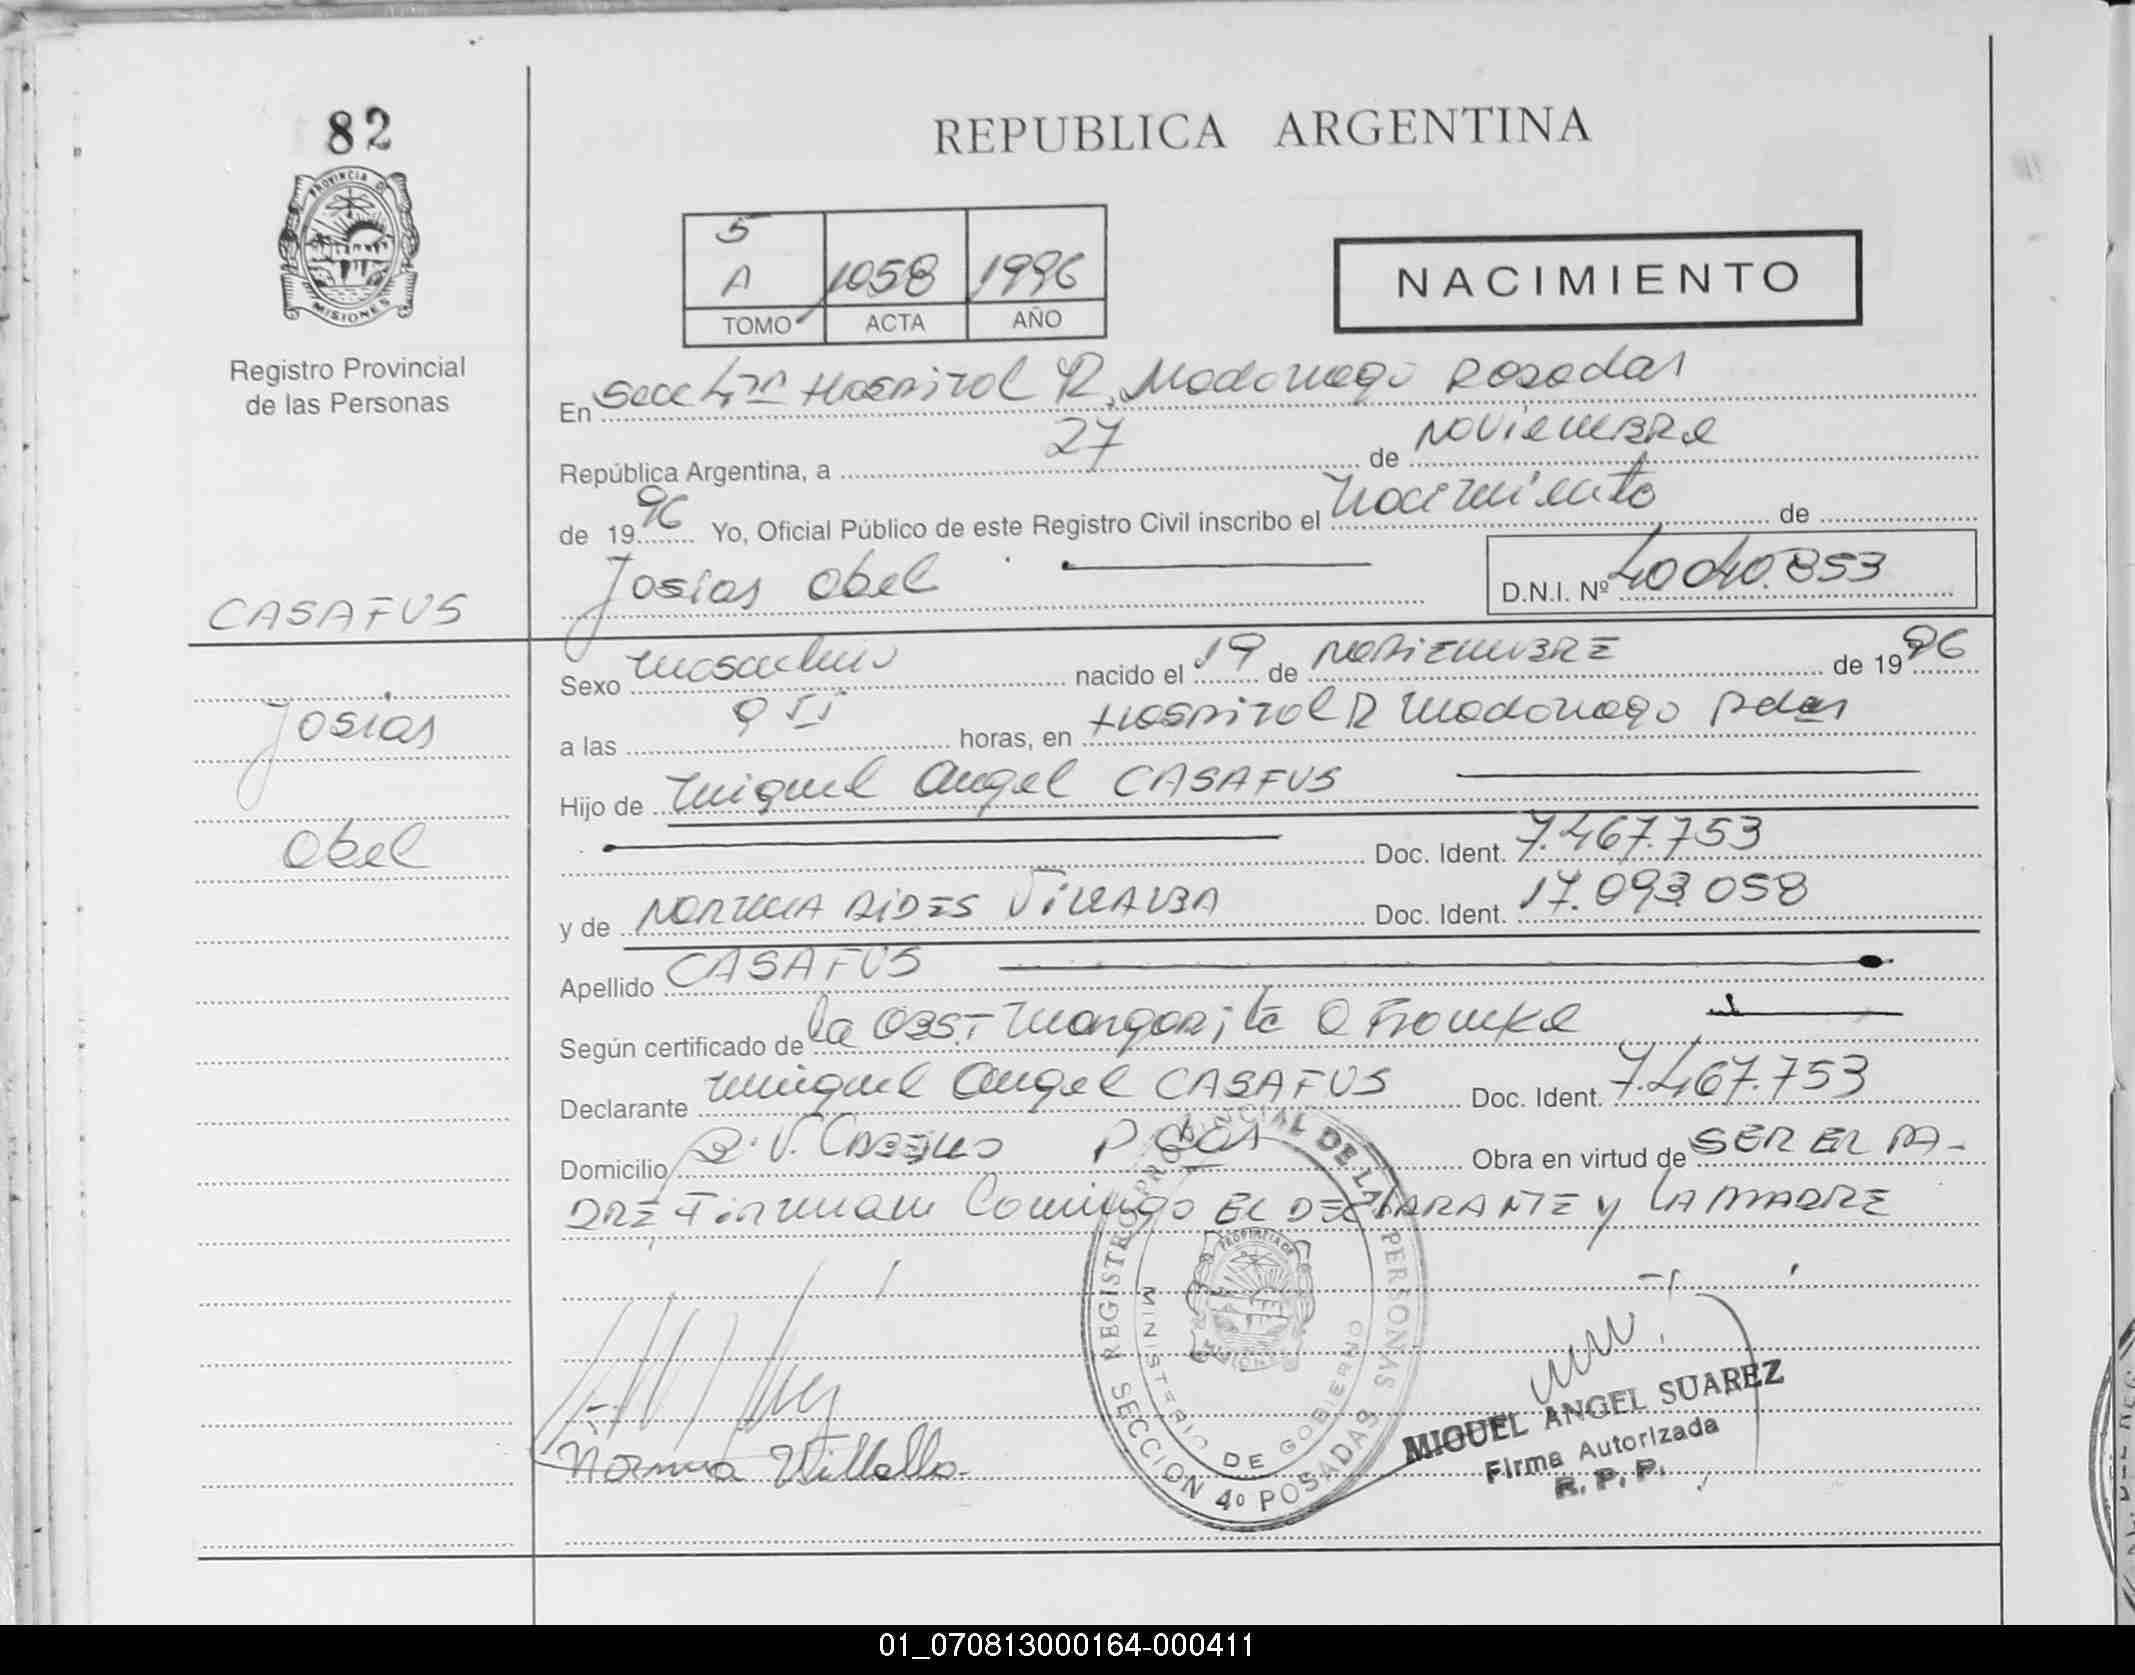 82
PROVINCIA DE
MISIONES
Registro Provincial
de las Personas
CASAFUS
Josias
Abel
REPUBLICA ARGENTINA
5
A 1058 1996
TOMO ACTA AÑO
NACIMIENTO
En Secc 4ta Hospital R. Madariaga Posadas
República Argentina, a 27 de noviembre
de 1996 Yo, Oficial Público de este Registro Civil inscribo el nacimiento de
Josias Abel D.N.I. Nº 40.040.853
Sexo masculino nacido el 19 de NOVIEMBRE de 1996
a las horas, en Hospital R Madariaga Pdas
Hijo de Miguel Angel CASAFUS
Doc. Ident. 7.467.753
y de NORMA AIDES VILLALBA Doc. Ident. 17.093.058
Apellido CASAFUS
Según certificado de la Obst Margarita
Declarante Miguel Angel CASAFUS Doc. Ident. 7.467.753
Domicilio Pdas Obra en virtud de SER EL PA-
DRE Firman Conmigo EL DECLARANTE y LA MADRE
Norma Villalba
REGISTRO PROVINCIAL DE LAS PERSONAS
MINISTERIO DE GOBIERNO
PROVINCIA DE
MISIONES
SECCION 4º POSADAS
MIGUEL ANGEL SUAREZ
Firma Autorizada
R. P. P.
01_070813000164-000411